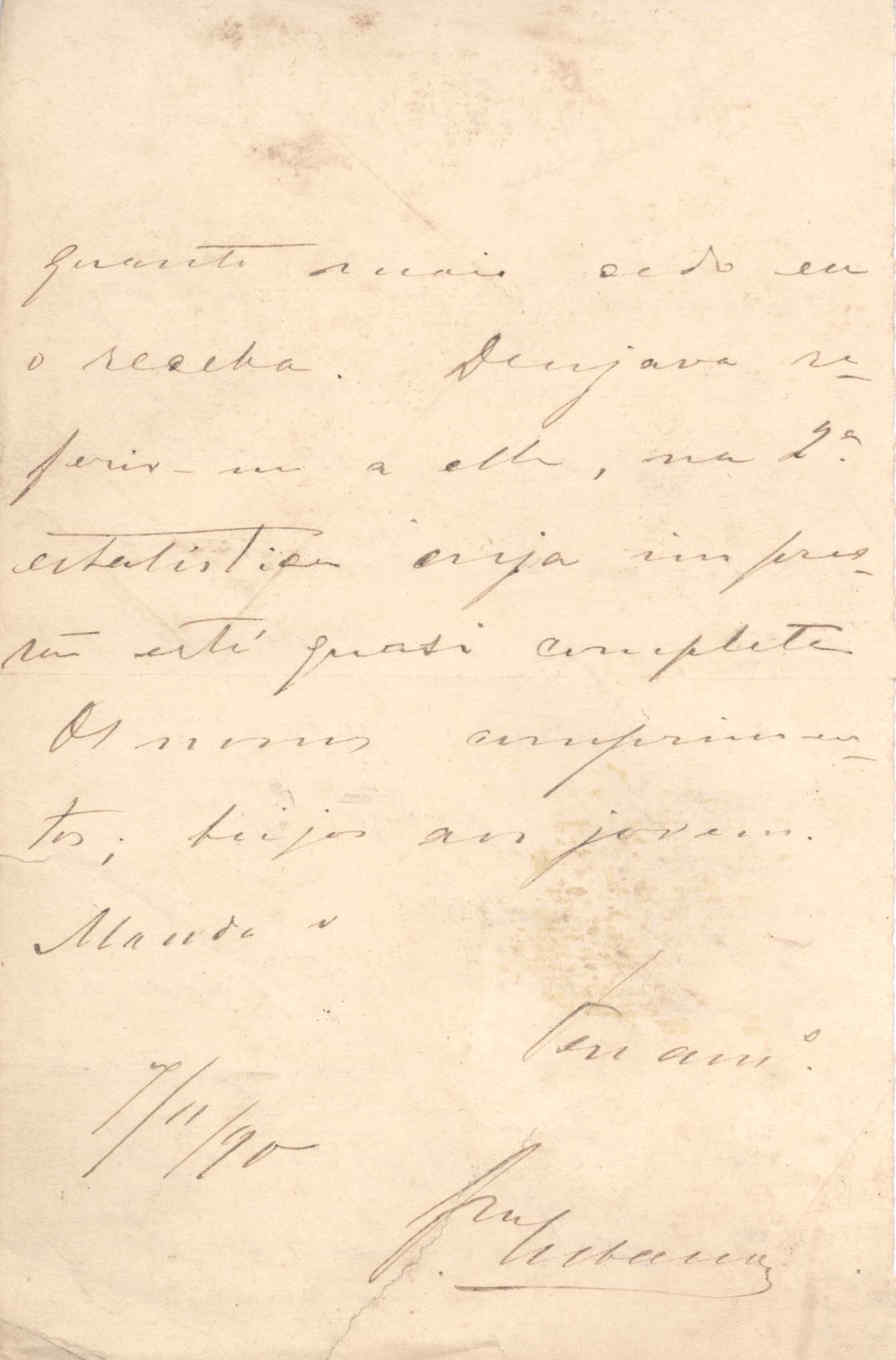 quanto mais cedo eu
o receba. Desejava re-
ferir-me a elle, na 2ª
estatistica cuja impres-
são está quasi completa
Os nossos cumprimen-
tos; beijos aos jovens.
Manda o
Teu amº.
7/11/90
Urbano